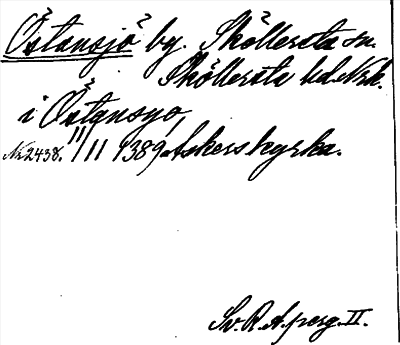 Östansjö by. Sköllersta sn.
Sköllersta hd. Nrk.
i Östansyo,
Nr 2438. 11/11 1389 Askers kyrka.
Sv. R. A. perg. II.